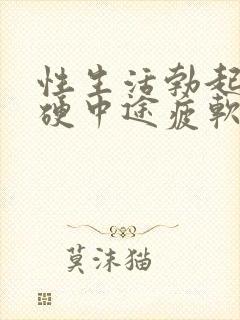 性生活勃起
硬中途疲軟
莫沫猫